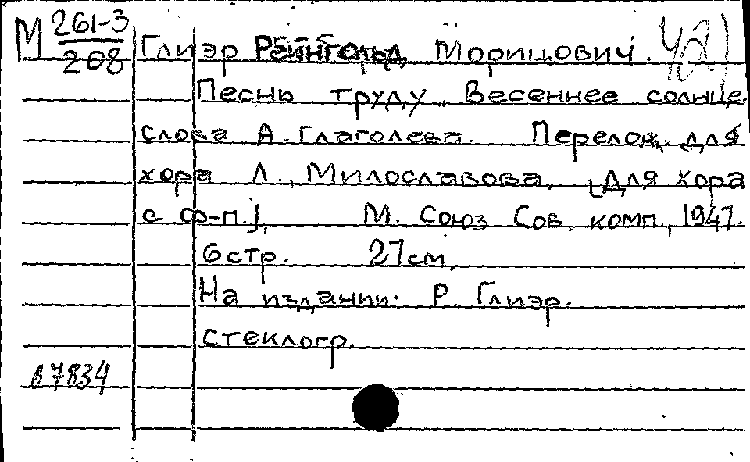 М 261-3
208
Глиэр Рейнгольд Морицович.
Песнь труду. Весеннее солнце
слова А. Глаголева. Перелож. для
хора Л. Милославова. [Для хора
с ф-п.], М. Союз Сов. комп., 1947.
6 стр. 27 см.
На издании: Р. Глиэр.
стеклогр.
67834